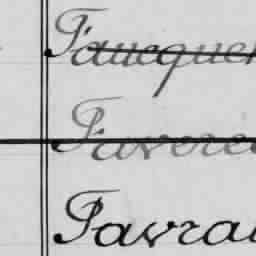 Faucquer
Favere
Favra